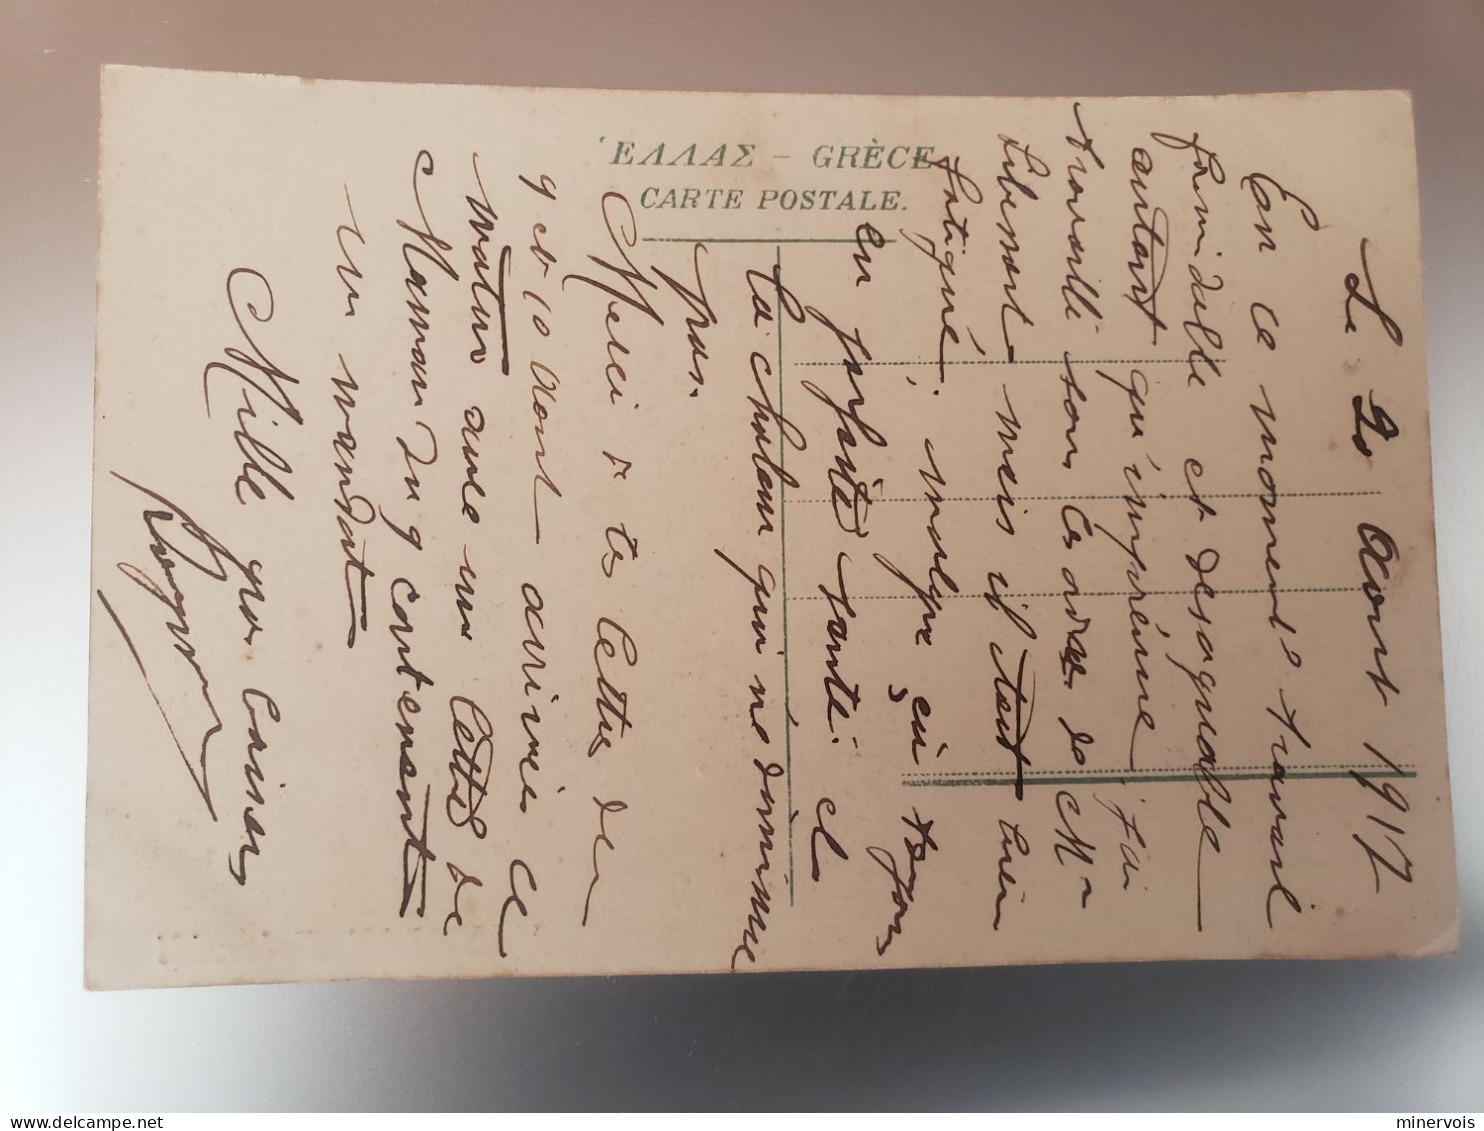 ἙΛΛΑΣ – GRÈCE
CARTE POSTALE.
Le 20 Aout 1917
En ce moment travail
formidable et désagréable
autant qu'imprévu J'ai
travaillé sous les ordres de M
mais il tout
fatigué, malgré ça toujours
en parfaite santé et
la chaleur qui ne diminue
pas.
Merci de tes lettres des
9 et 10 Aout arrivées ce
matin avec une lettre de
Maman du 9 contenant
un mandat
Mille gros baisers
minervois